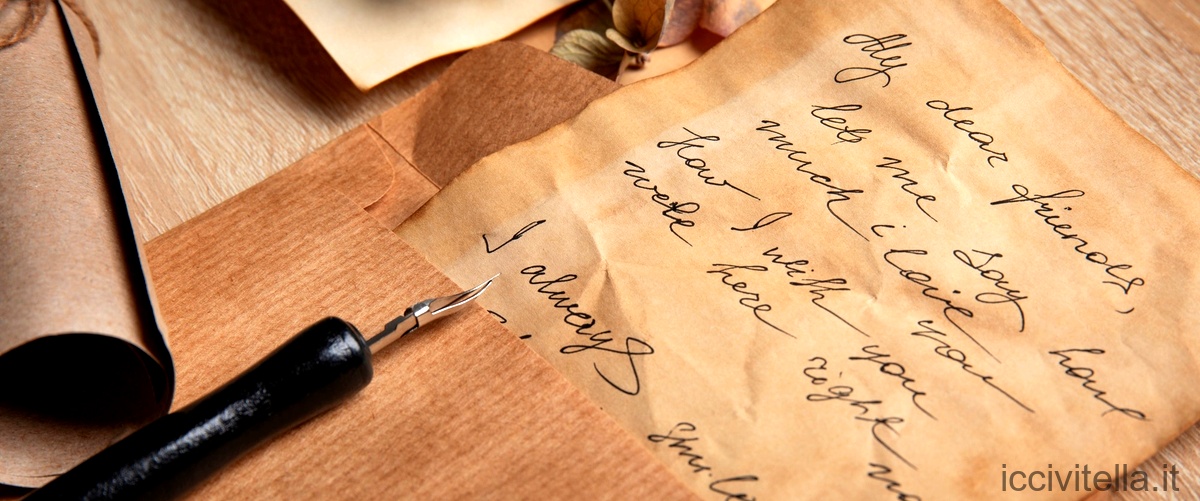 My dear friends,
let me say how
much i love you
How I wish you
were here right
I always
iccivitella.it